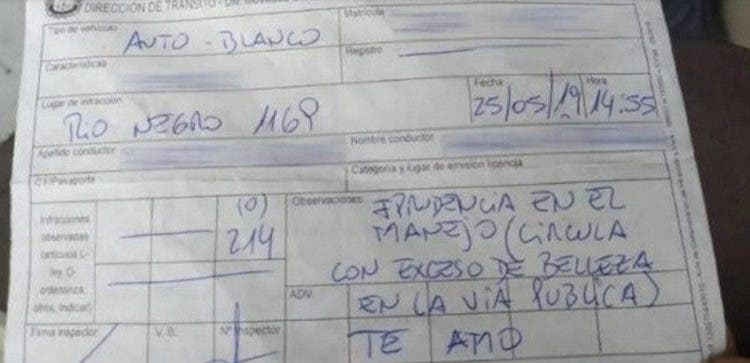 DIRECCIÓN DE TRÁNSITO - DIV.
Tipo de vehículo
AUTO - BLANCO
Matrícula
Características
Registro
Lugar de infracción
RIO NEGRO 1169
Fecha
25/05/19
Hora
14:55
Apellido conductor
Nombre conductor
C.I./Pasaporte
Categoría y lugar de emisión licencia
Infracciones
observadas
(artículos L-
ley, O-
ordenanza,
otros, indicar)
(0)
214
Observaciones
IPRUDENCIA EN EL
MANEJO (CIRCULA
CON EXCESO DE BELLEZA
ADV
EN LA VIA PUBLICA)
Firma Inspector
V. B.
Nº Inspector
TE AMO